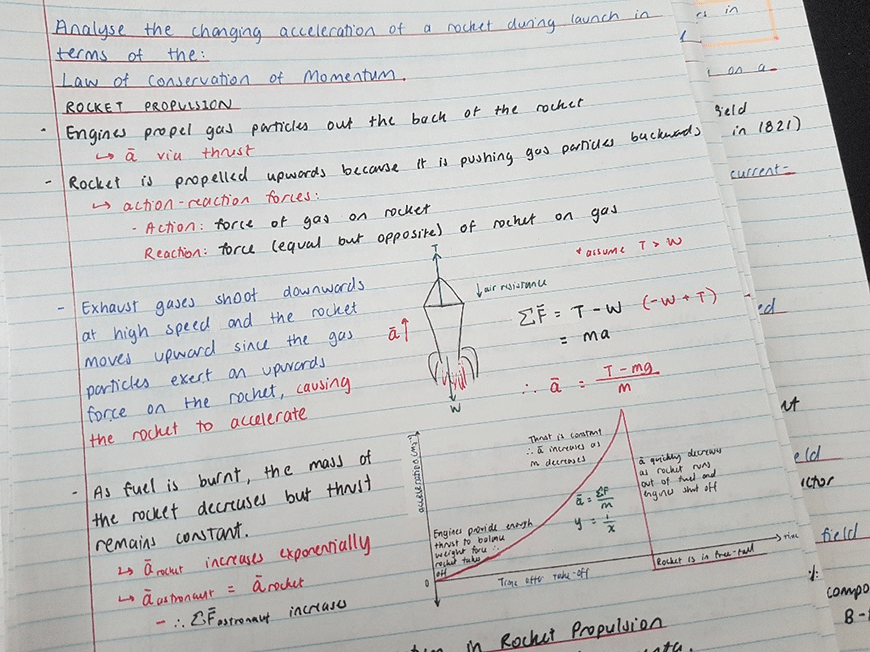 Analyse the changing acceleration of a rocket during launch in
terms of the:
Law of Conservation of Momentum.
ROCKET PROPULSION
- Engines propel gas particles out the back of the rocket
↳ ā via thrust
- Rocket is propelled upwards because it is pushing gas particles backwards
↳ action-reaction forces:
- Action: force of gas on rocket
Reaction: force (equal but opposite) of rocket on gas
* assume T > W
- Exhaust gases shoot downwards
at high speed and the rocket
moves upward since the gas
particles exert an upwards
force on the rocket, causing
the rocket to accelerate
T
↓air resistance
ā↑
W
ΣF̄ = T - W (-W + T)
= ma
∴ ā = T - mg / m
- As fuel is burnt, the mass of
the rocket decreases but thrust
remains constant.
↳ ā rocket increases exponentially
↳ ā astronaut = ā rocket
- ∴ ΣF̄ astronaut increases
acceleration (ms⁻²)
Thrust is constant
∴ ā increases as
m decreases
ā quickly decreases
as rocket runs
out of fuel and
engines shut off
ā = ΣF̄/m
y = 1/x
Engines provide enough
thrust to balance
weight force ∴
rocket takes
off
0
Time after take-off
time
Rocket is in free-fall
in Rocket Propulsion
in
on a
field
in 1821)
current-
field
compo